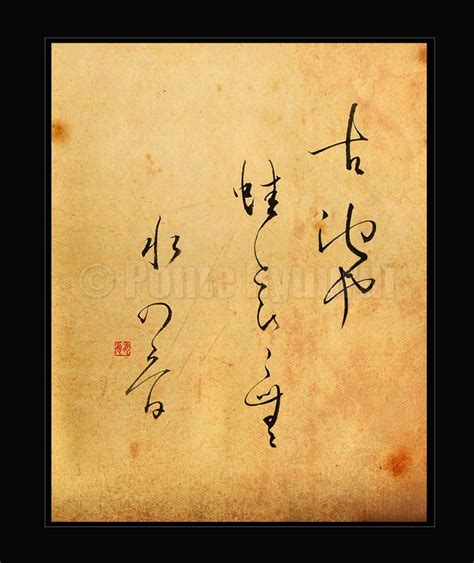 古池や
蛙とひこむ
水の音
© Ponte Ryuurui